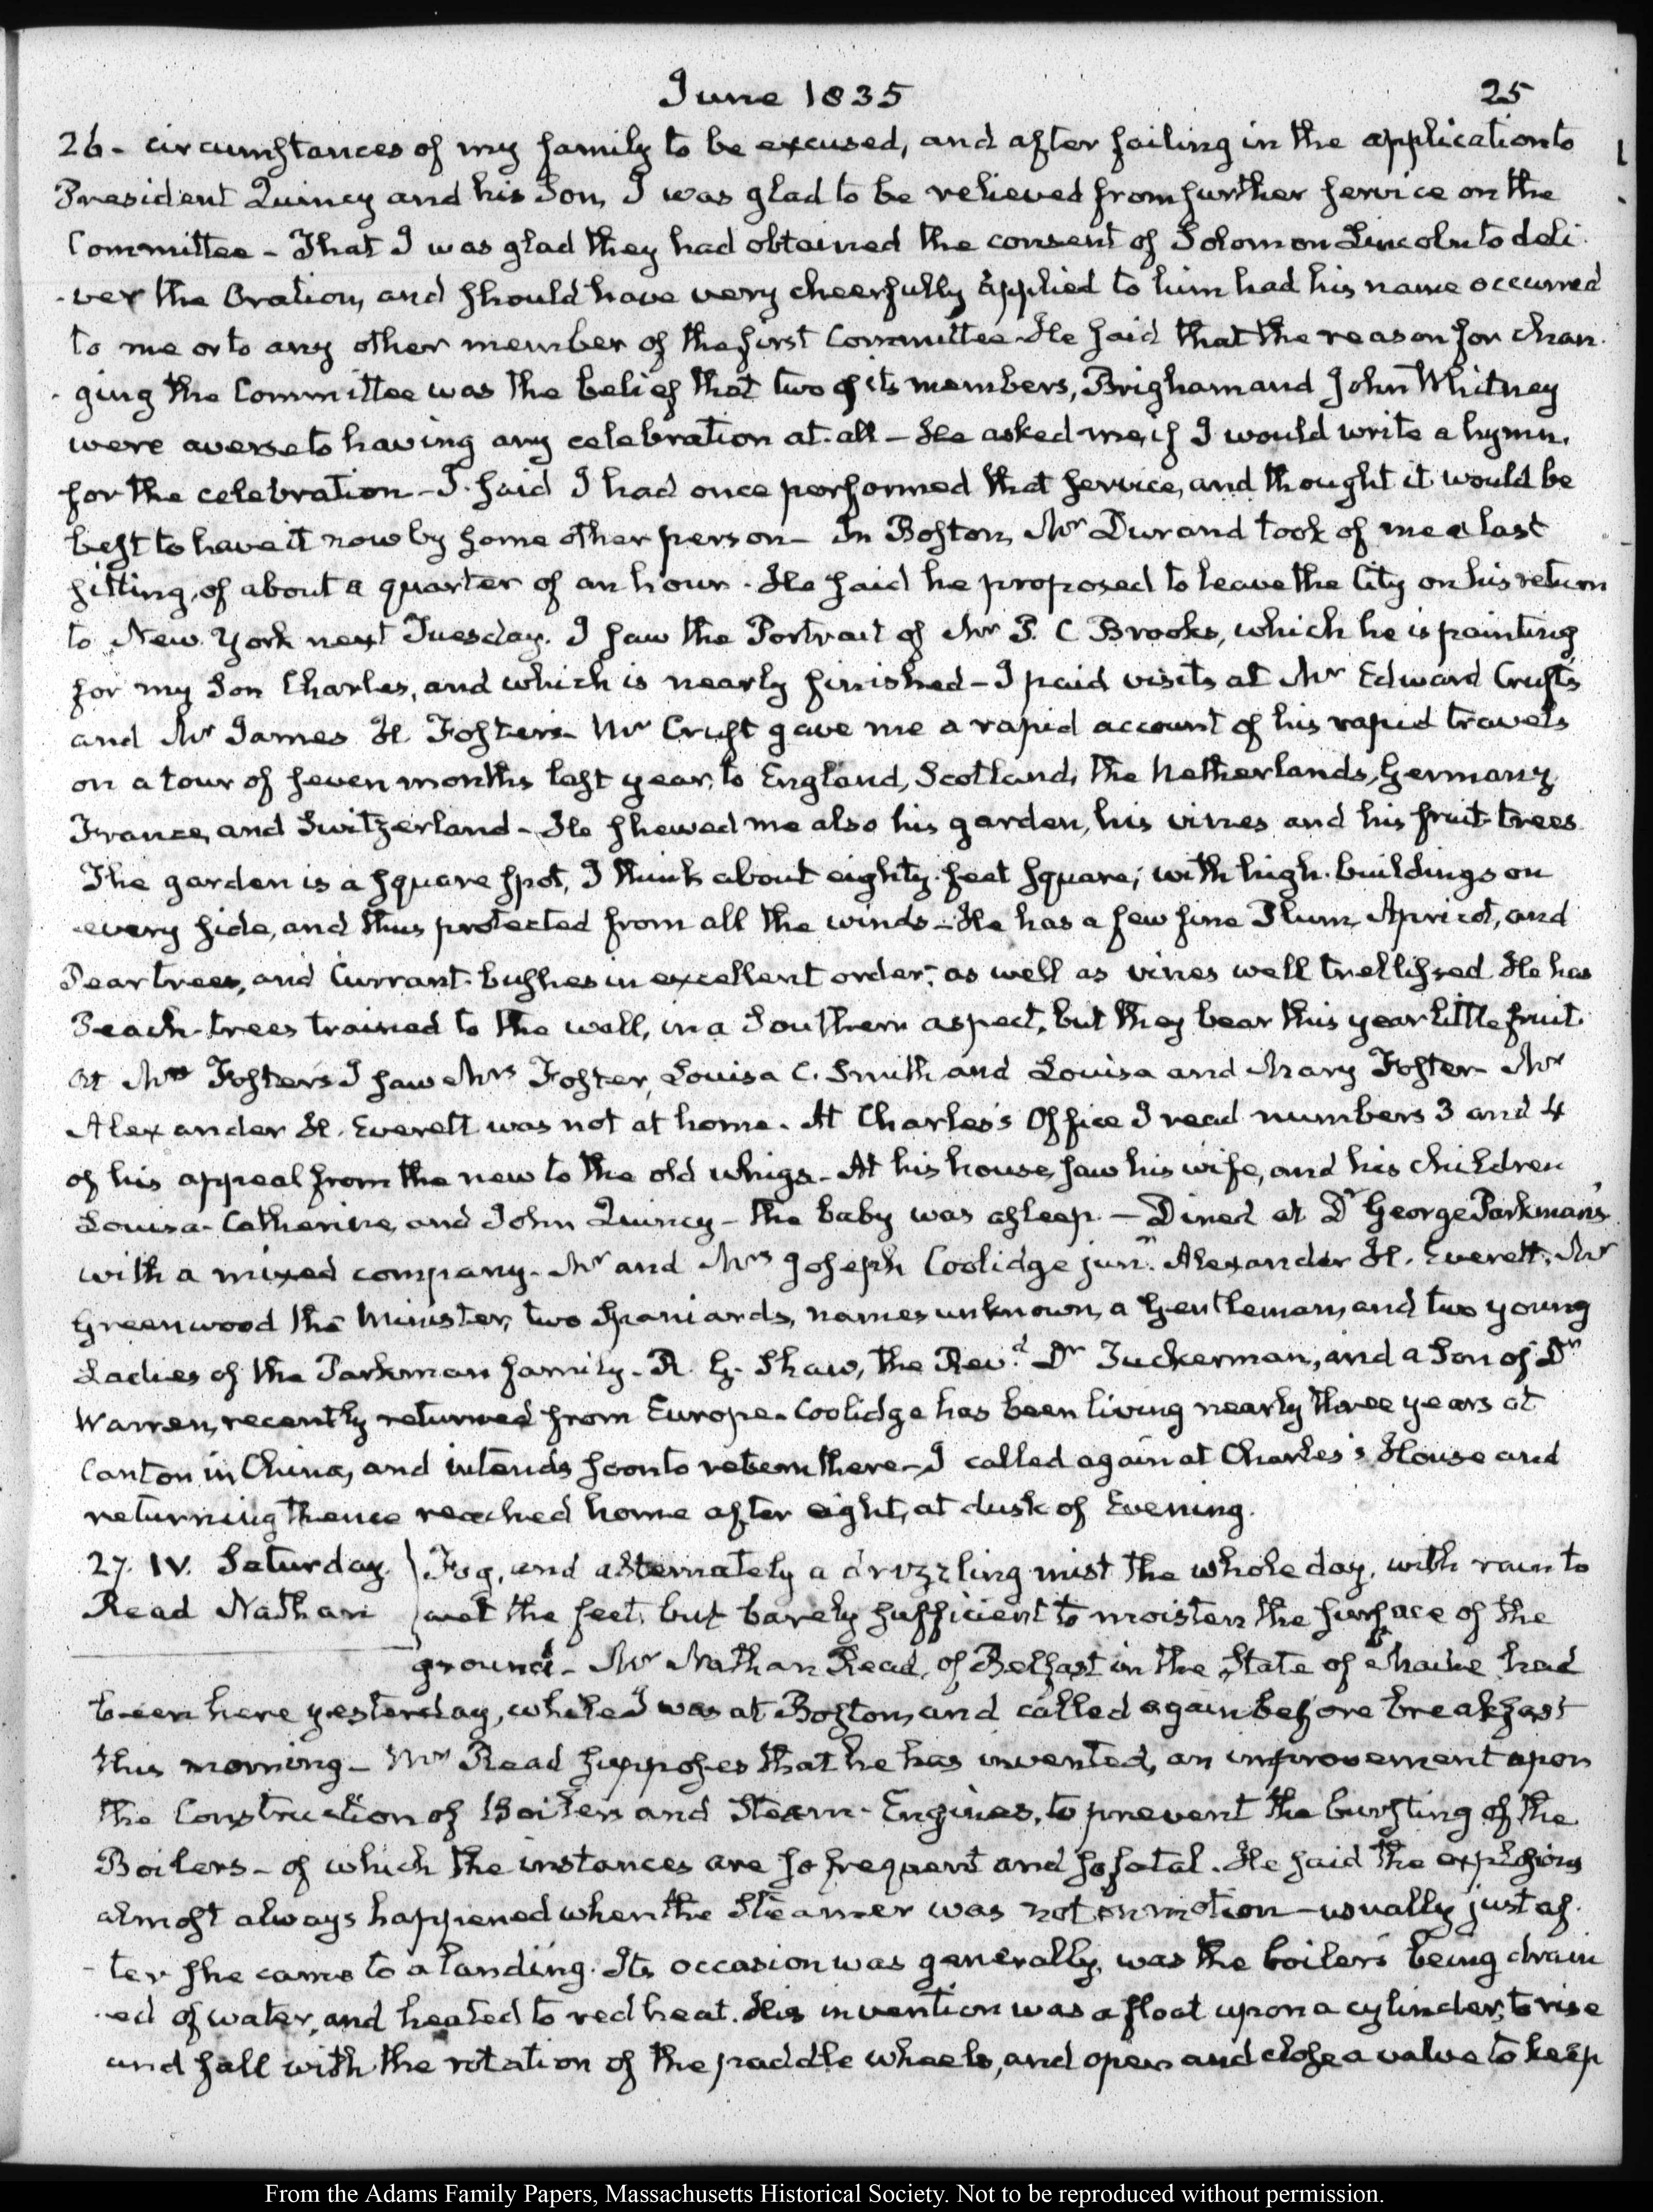 June 1835 25
26. circumstances of my family to be excused, and after failing in the application to
President Quincy and his Son, I was glad to be relieved from further service on the
Committee - That I was glad they had obtained the consent of Solomon Lincoln to deli-
-ver the Oration, and should have very cheerfully applied to him had his name occurred
to me or to any other member of the first Committee. He said that the reason for chan-
-ging the Committee was the belief that two of its members, Brigham and John Whitney
were averse to having any celebration at all - He asked me, if I would write a hymn,
for the celebration - I said I had once performed that service, and thought it would be
best to have it now by some other person - In Boston, Mr Durand took of me a last
sitting, of about a quarter of an hour. He said he proposed to leave the City on his return
to New York next Tuesday. I saw the Portrait of Mr P. C Brooks, which he is painting
for my Son Charles, and which is nearly finished - I paid visits at Mr Edward Cruft's
and Mr James H. Foster's - Mr Cruft gave me a rapid account of his rapid travels
on a tour of seven months last year, to England, Scotland, the Netherlands, Germany,
France, and Switzerland - He shewed me also his garden, his vines and his fruit-trees.
The garden is a square spot, I think about eighty feet square; with high buildings on
every side, and thus protected from all the winds - He has a few fine Plum, Apricot, and
Pear trees, and Currant-bushes in excellent order; as well as vines well trellised. He has
Peach-trees trained to the wall, in a Southern aspect, but they bear this year little fruit.
At Mr Foster's I saw Mrs Foster, Louisa C. Smith and Louisa and Mary Foster - Mr
Alexander H. Everett was not at home. At Charles's Office I read numbers 3 and 4
of his appeal from the new to the old whigs - At his house, saw his wife, and his children
Louisa-Catherine, and John Quincy - the baby was asleep. - Dined at Dr George Parkman's
with a mixed company - Mr and Mrs Joseph Coolidge junr. Alexander H. Everett, Mr
Greenwood the Minister, two Spaniards, names unknown, a Gentleman, and two young
Ladies of the Parkman family - R. G. Shaw, the Revd. Dr Tuckerman, and a Son of Dr
Warren, recently returned from Europe. Coolidge has been living nearly three years at
Canton in China, and intends soon to return there - I called again at Charles's House and
returning thence reached home after eight, at dusk of Evening.
27. IV. Saturday. Fog, and alternately a drizzling mist the whole day, with rain to
Read Nathan wet the feet, but barely sufficient to moisten the surface of the
ground - Mr Nathan Read, of Belfast in the State of Maine had
been here yesterday, while I was at Boston, and called again before breakfast
this morning - Mr Read supposes that he has invented, an improvement upon
the Construction of Boilers and Steam-Engines, to prevent the bursting of the
Boilers - of which the instances are so frequent and so fatal. He said the explosions
almost always happened when the Steamer was not in motion - usually just af-
-ter she came to a landing. Its occasion was generally, was the boilers being drain
-ed of water, and heated to red heat. His invention was a float upon a cylinder, to rise
and fall with the rotation of the paddle wheels, and open and close a valve to keep
From the Adams Family Papers, Massachusetts Historical Society. Not to be reproduced without permission.